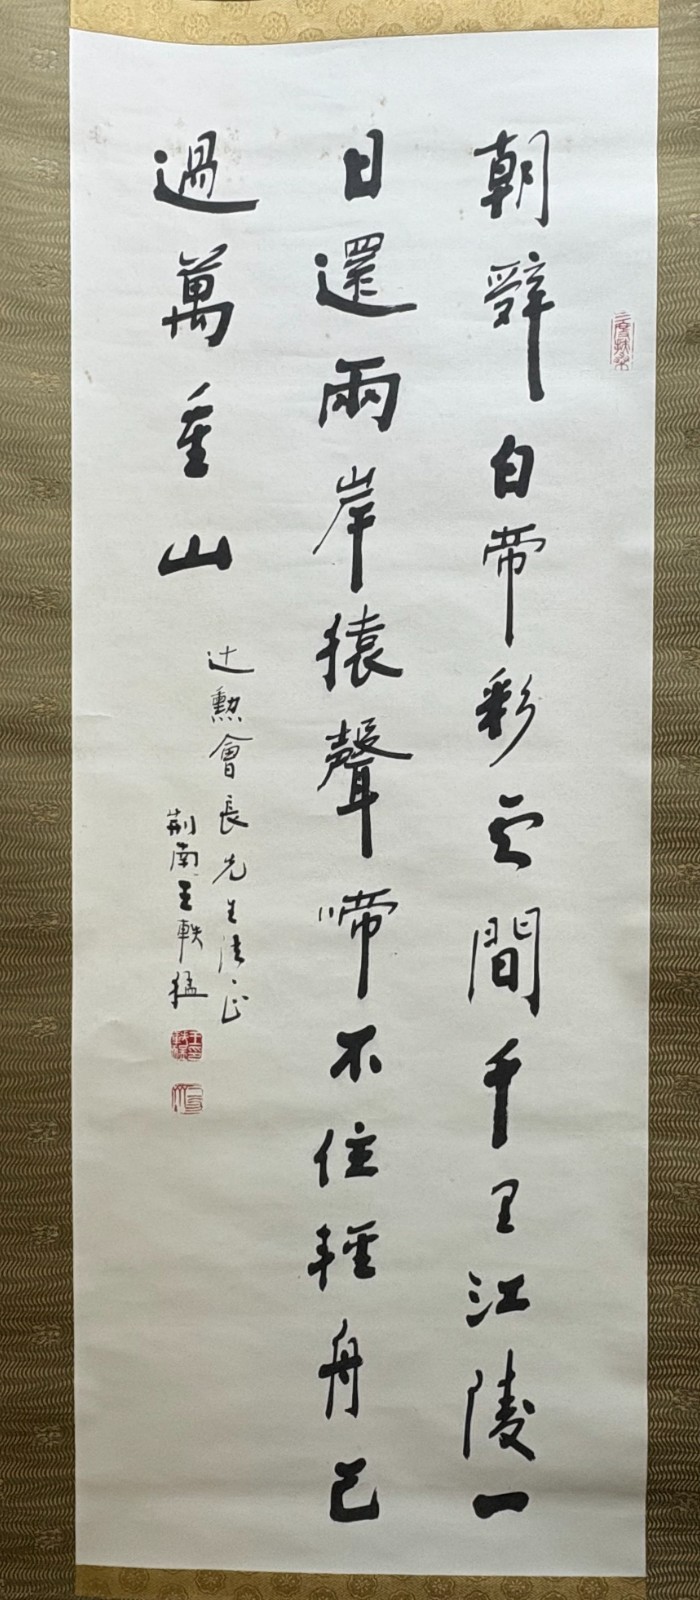 朝辭白帝彩雲間千里江陵一
日還兩岸猿聲啼不住輕舟已
過萬重山
辻勲會長先生法正
荆南王軼猛